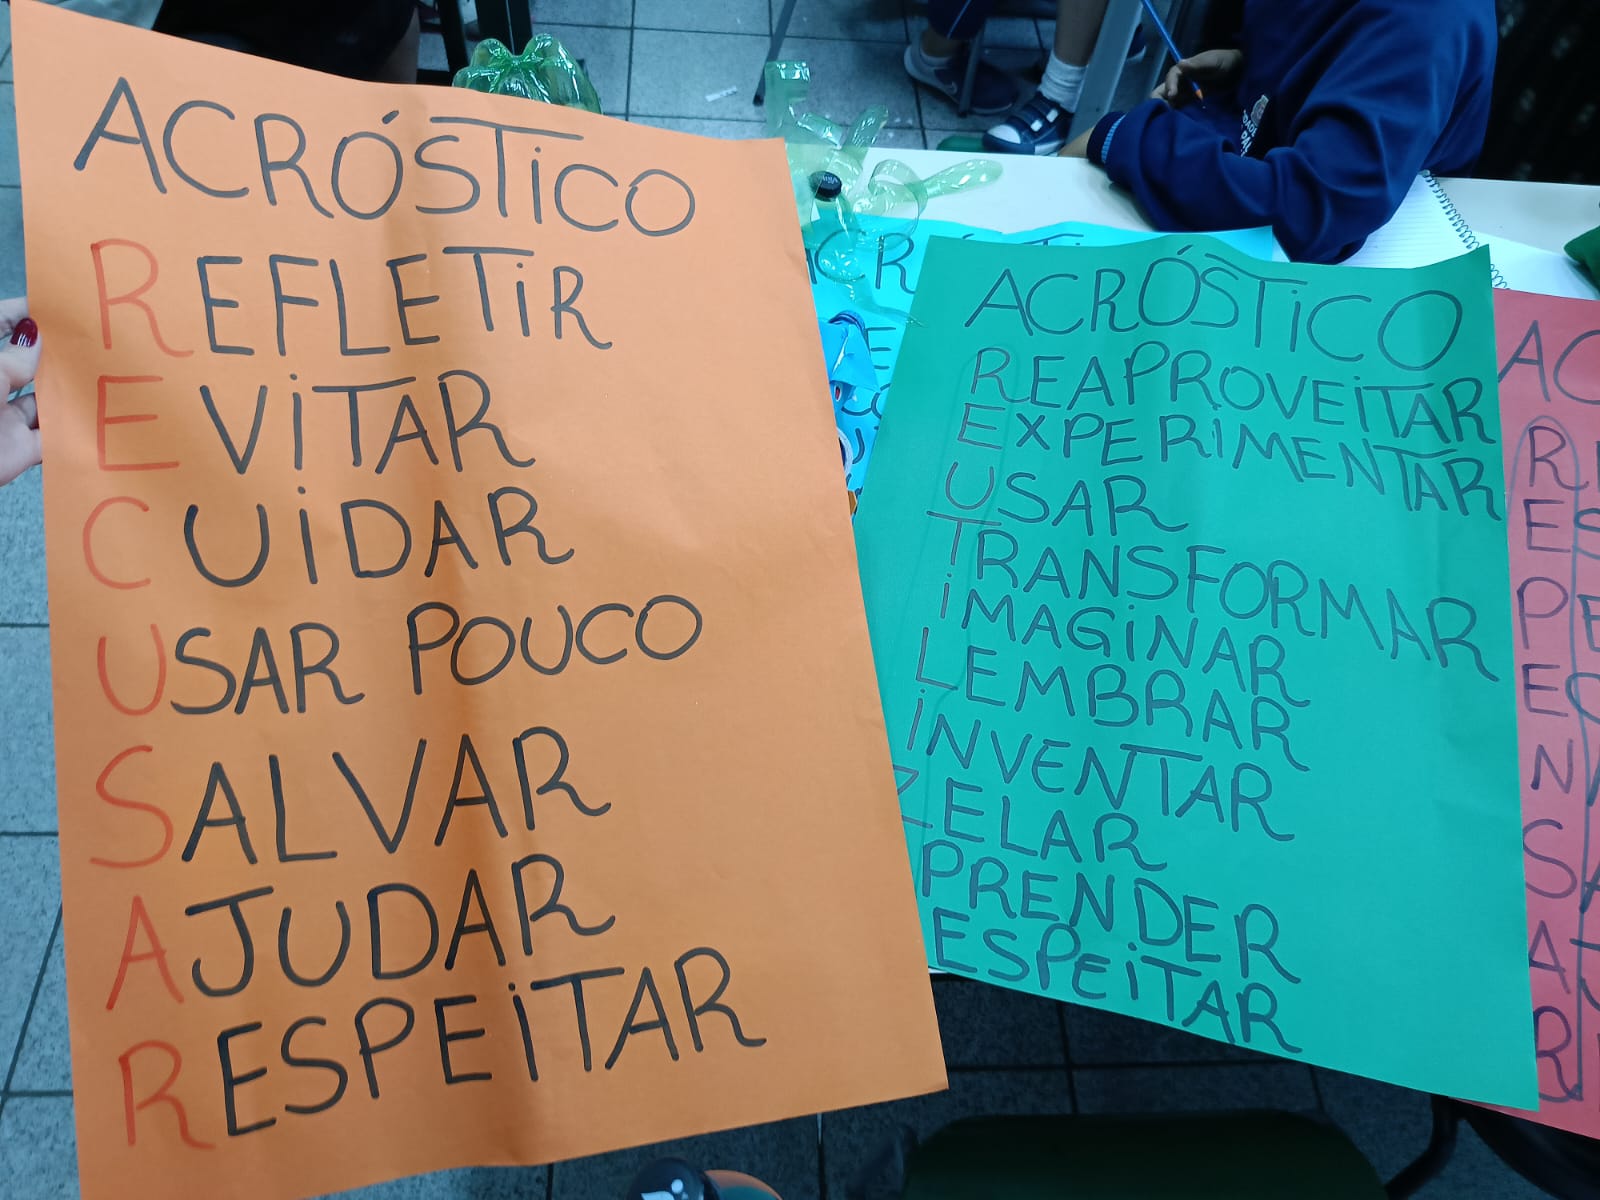 ACRÓSTICO
REFLETIR
EVITAR
CUIDAR
USAR POUCO
SALVAR
AJUDAR
RESPEITAR
ACRÓSTICO
REAPROVEITAR
EXPERIMENTAR
USAR
TRANSFORMAR
IMAGINAR
LEMBRAR
INVENTAR
ZELAR
PRENDER
ESPEITAR